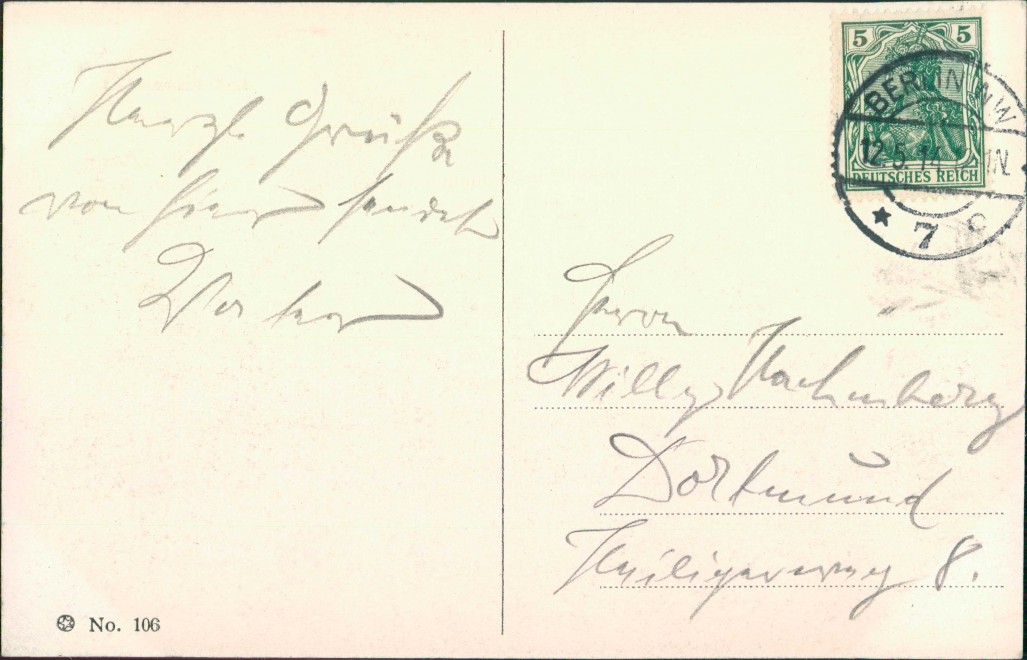 Herzl. Grüße
von hier sendet
5 5
DEUTSCHES REICH
BERLIN NW
12.5.14
* 7 c
Herrn
Willy
Dortmund
Heiligerweg 8.
No. 106